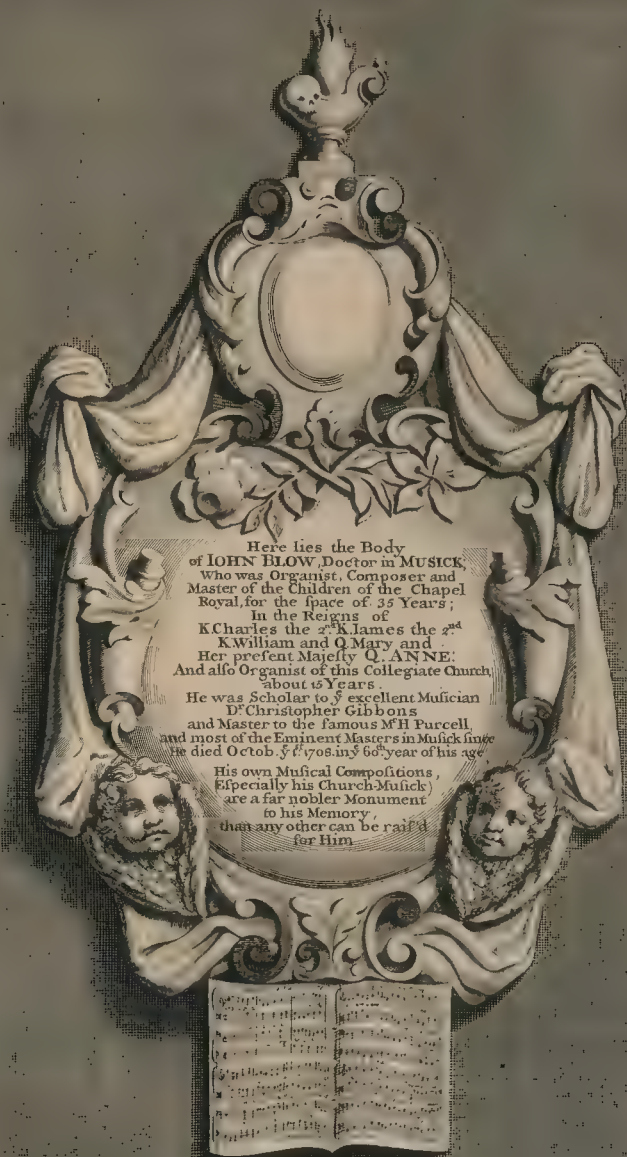 Here lies the Body
of IOHN BLOW, Doctor in MUSICK,
Who was Organist, Composer and
Master of the Children of the Chapel
Royal, for the ſpace of 35 Years;
In the Reigns of
K.Charles the 2nd K.Iames the 2nd
K.William and Q.Mary and
Her preſent Majeſty Q. ANNE:
And alſo Organist of this Collegiate Church,
about 15 Years.
He was Scholar to ye excellent Muſician
Dr Christopher Gibbons
and Master to the famous Mr H Purcell,
and most of the Eminent Masters in Muſick ſince
He died Octob. ye 1st 1708. in ye 60th year of his age
His own Muſical Compoſitions,
Eſpecially his Church-Muſick)
are a far nobler Monument
to his Memory,
than any other can be raiſ'd
for Him